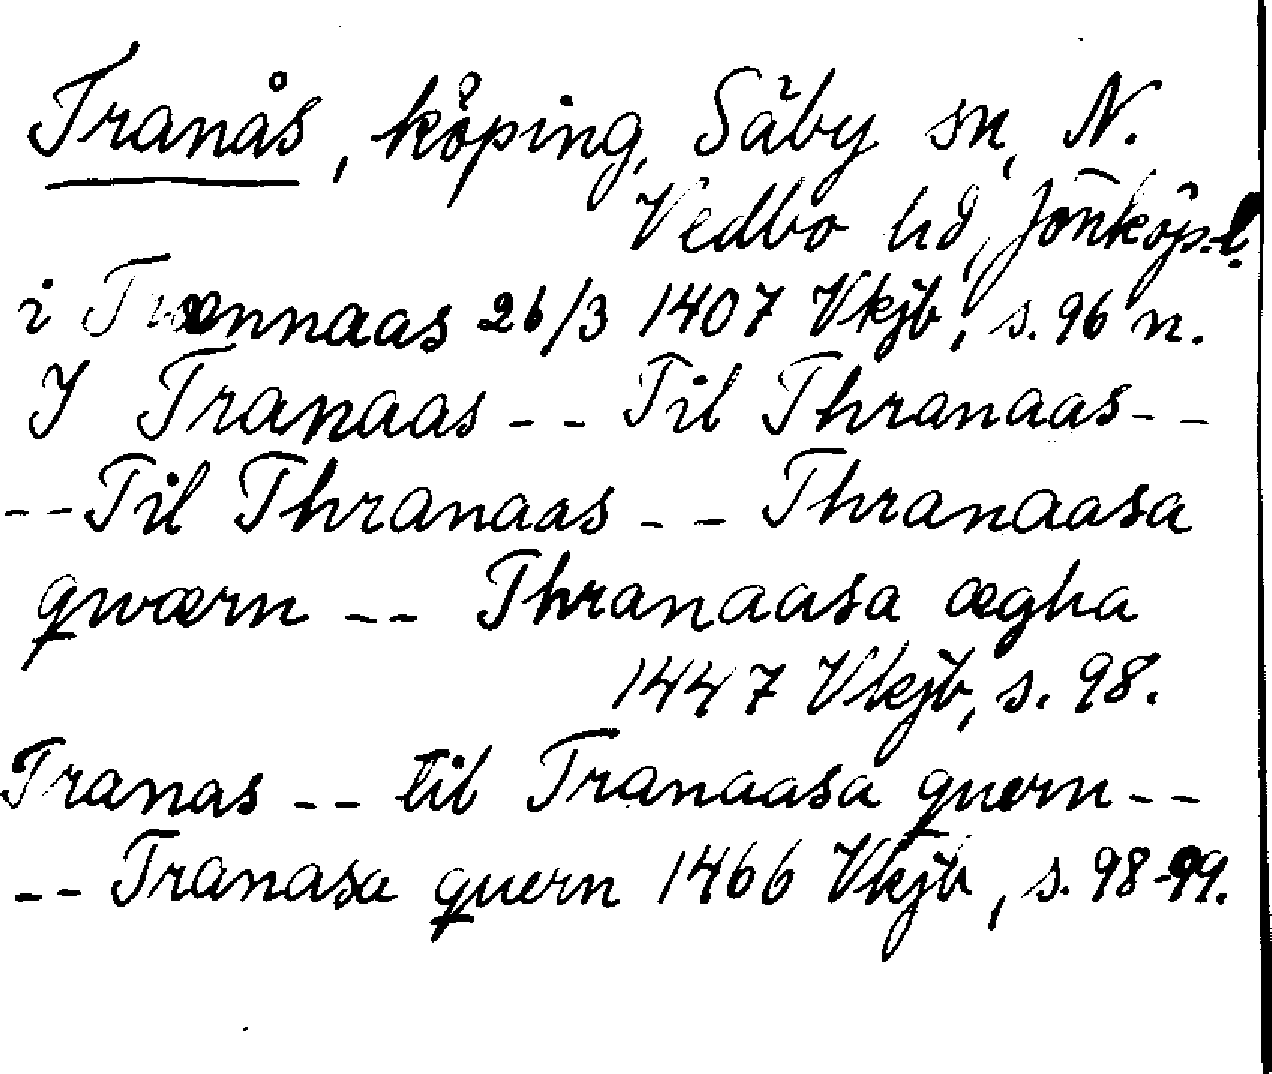 Tranås, köping, Säby sn, N.
Vedbo hd, Jönköp. l.
i Trænnaas 26/3 1407 Vkjb, s. 96 n.
J Tranaas -- Til Thranaas --
-- Til Thranaas -- Thranaasa
qwærn -- Thranaasa ægha
1447 Vkjb, s. 98.
Tranas -- til Tranaasa quern --
-- Tranasa quern 1466 Vkjb, s. 98-99.